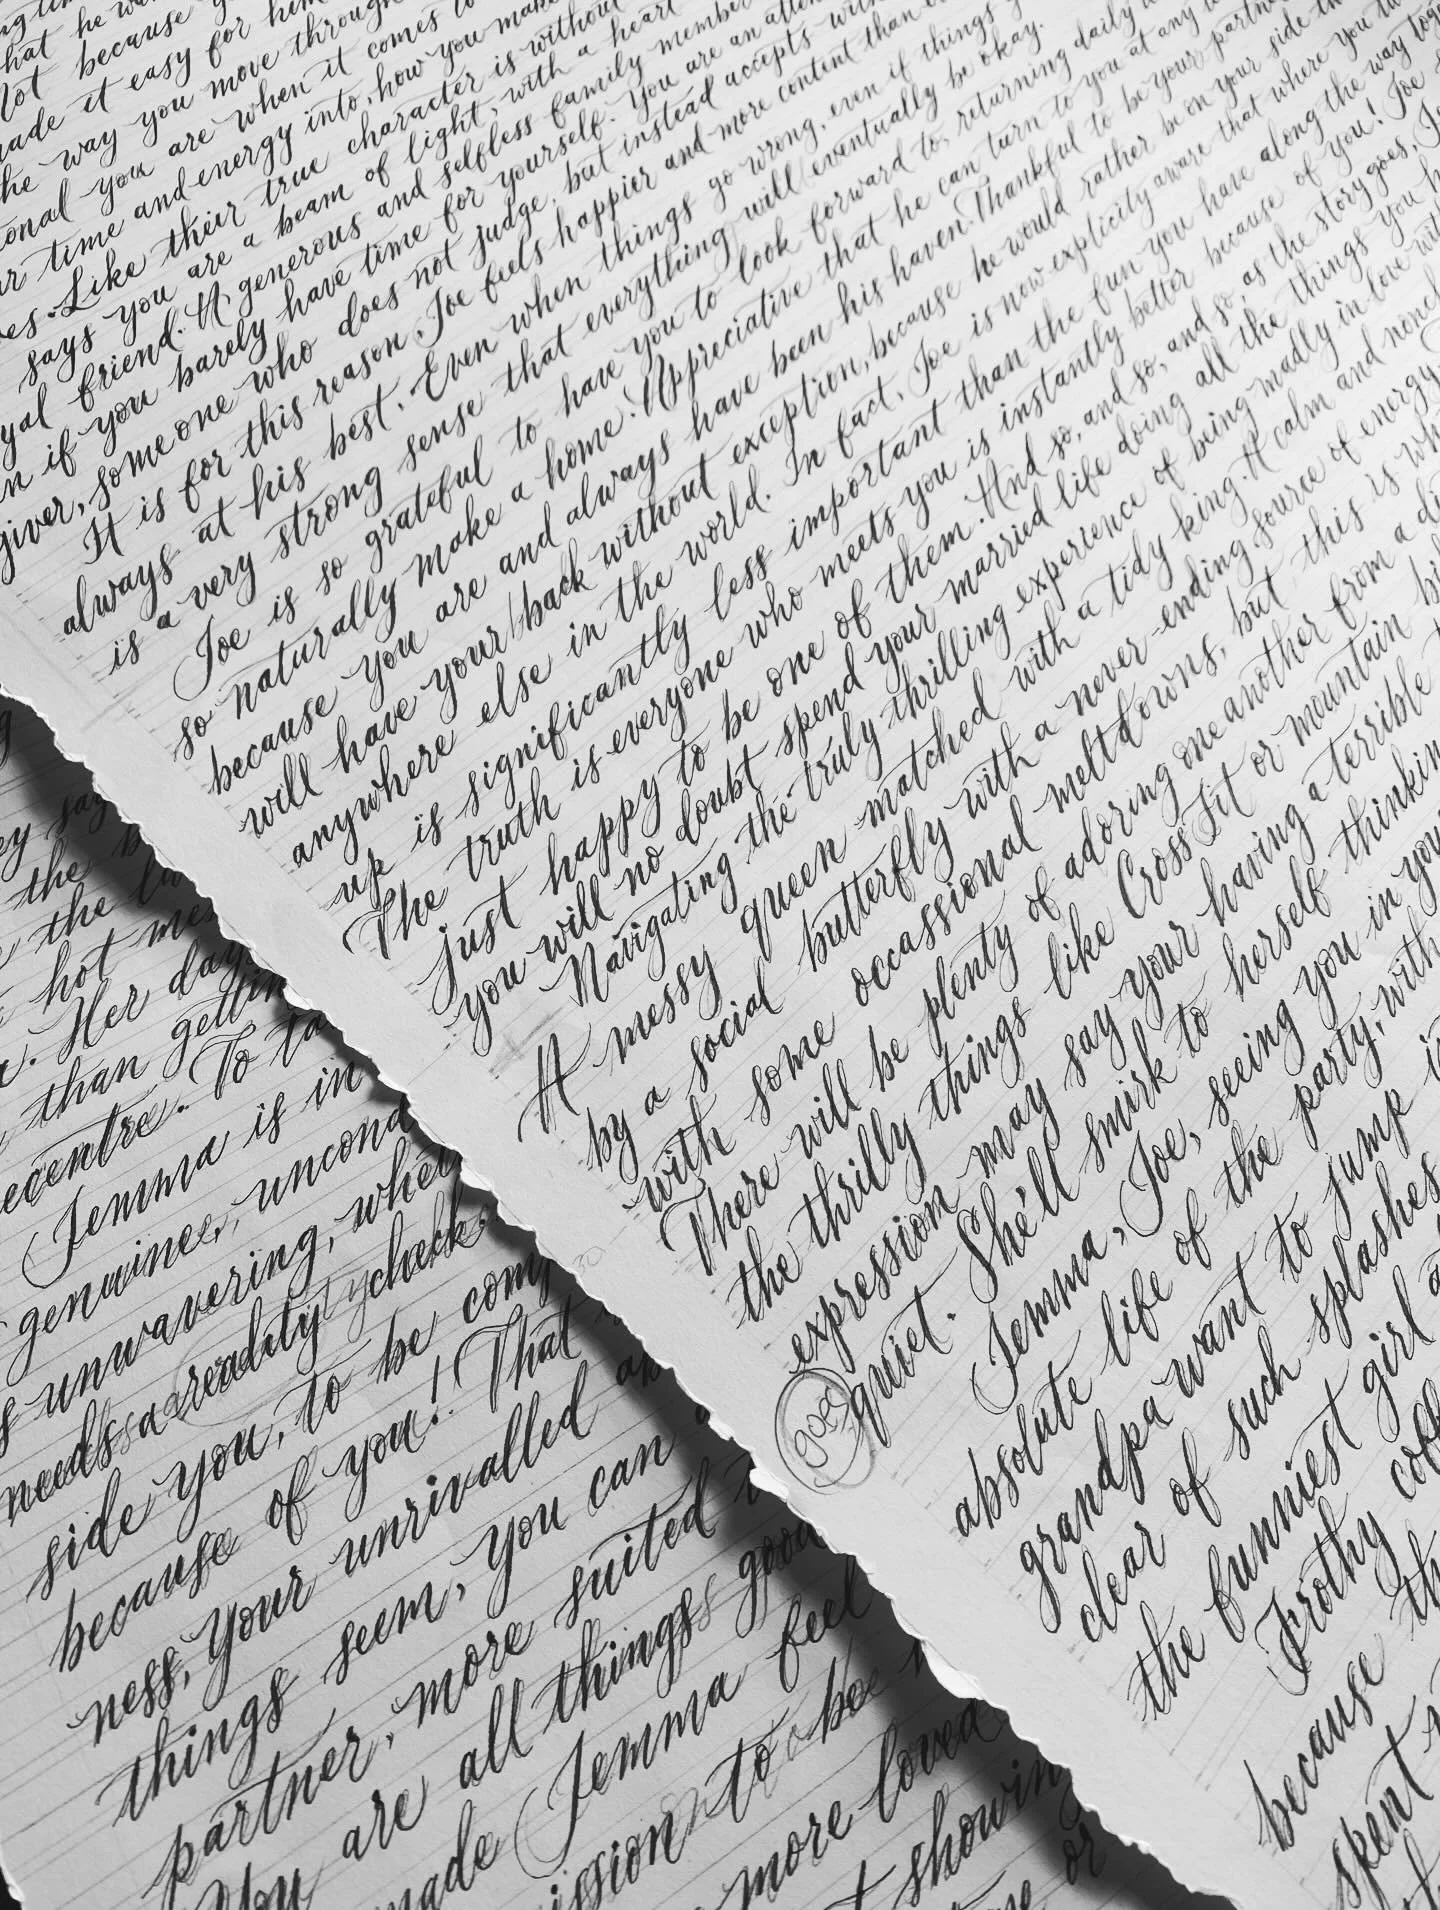 that he wa
Not because y
made it easy for him
the way you move through
ional you are when it comes to
ur time and energy into, how you make
es. Like their true character is without
says you are a beam of light, with a heart
yal friend. A generous and selfless family member
n if you barely have time for yourself. You are an atten
giver, someone who does not judge, but instead accepts with
It is for this reason, Joe feels happier and more content than ev
always at his best. Even when things go wrong, even if things g
is a very strong sense that everything will eventually be okay.
Joe is so grateful to have you to look forward to, returning daily to
so naturally make a home. Appreciative that he can turn to you at any ti
because you are and always have been his haven. Thankful to be your partne
will have your back without exception, because he would rather be on your side th
anywhere else in the world. In fact, Joe is now explicity aware that where you tw
up is significantly less important than the fun you have along the way toge
The truth is everyone who meets you is instantly better because of you! Joe
just happy to be one of them. And so, and so, and so, as the story goes, J
you will no doubt spend your married life doing all the things you h
Navigating the truly thrilling experience of being madly in love wit
A messy queen matched with a tidy king. A calm and nonch
by a social butterfly with a never-ending source of energy
with some occassional meltdowns, but this is wh
There will be plenty of adoring one another from a di
the thrilly things like CrossFit or mountain bi
expression may say your having a terrible
goes
quiet. She'll smirk to herself thinkin
Jemma, Joe, seeing you in you
absolute life of the party, with
grandpa want to jump i
clear of such splashes
the funniest girl a
Frothy cof
because th
spent
ey say
the b
the la
hot me
. Her days
than gettin
ecentre. To ta
Jemma is in
genuine, uncond
s unwavering, when
needs a reality check.
side you, to be com
because of you! That
ness, your unrivalled
things seem, you can
partner, more suited t
You are all things good
made Jemma feel
ission to be
more loved
t showing
or